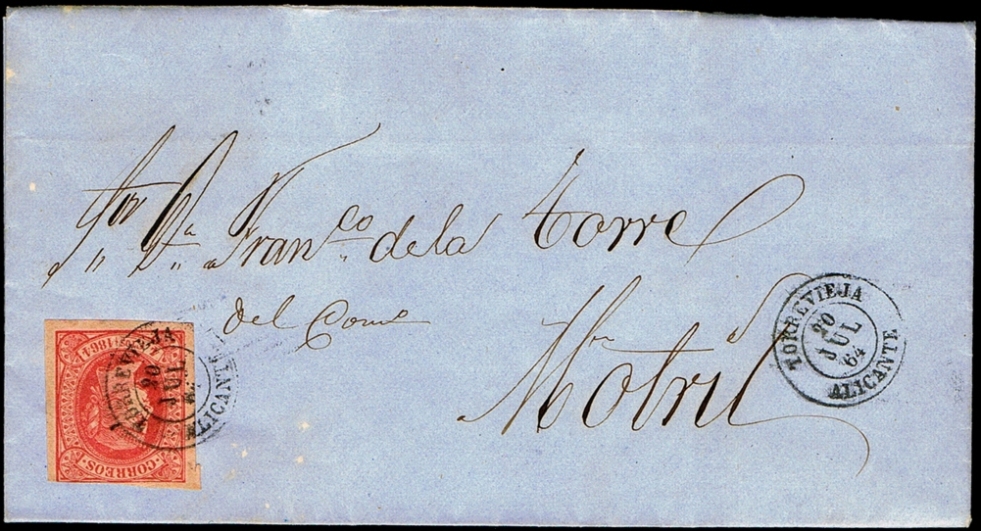 Sor Dn Franco de la Torre
del Come
Motril
TORREVIEJA
20
JUL
64
ALICANTE
4 CUARTOS 1864
CORREOS
TORREVIEJA
20
JUL
ALICANTE